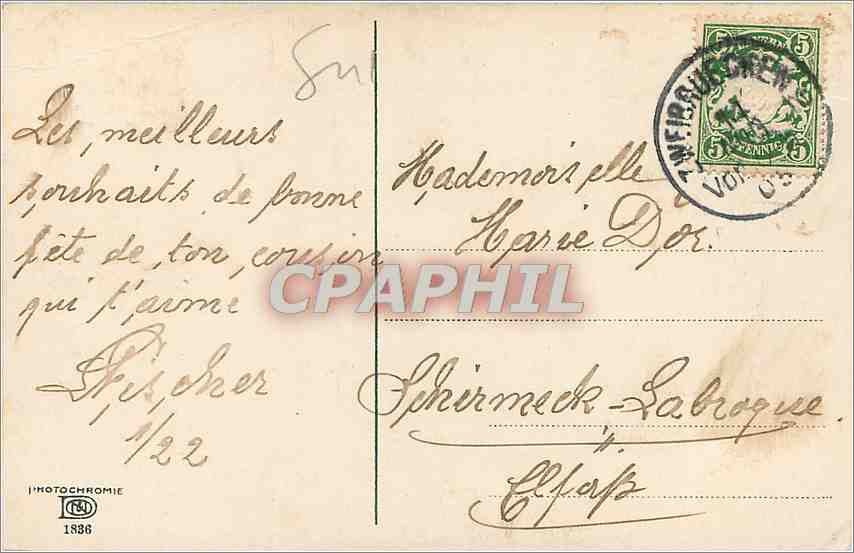 Les meilleurs
souhaits de bonne
fête de ton cousin
qui t'aime
Fischer
1/22
PHOTOCHROMIE
1836
CPAPHIL
BAYERN
5 5
5 5
PFENNIG
ZWEIBRUECKEN
Vor
Mademoiselle
Marie Dor.
Schirmeck-Labroque.
Elsaß